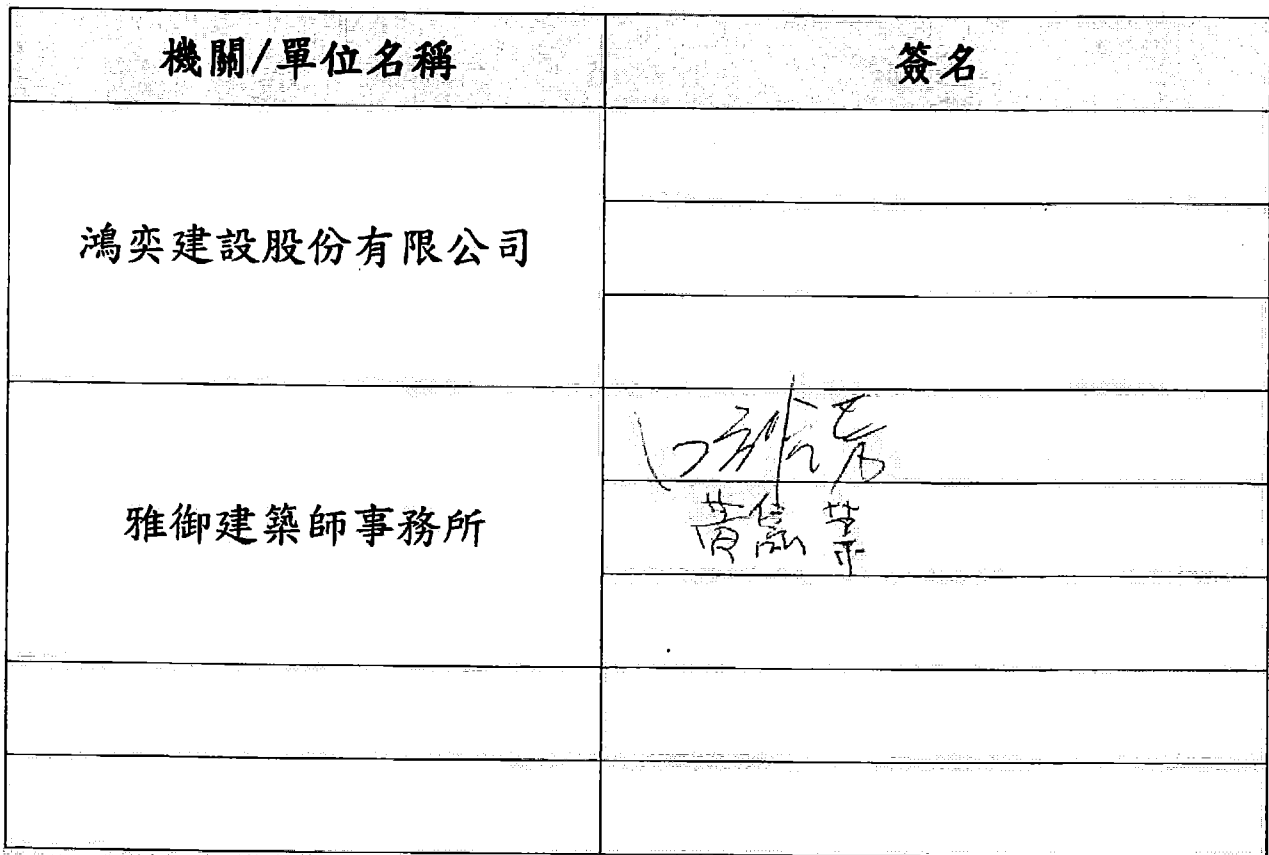 機關/單位名稱
簽名
鴻奕建設股份有限公司
雅御建築師事務所
黃